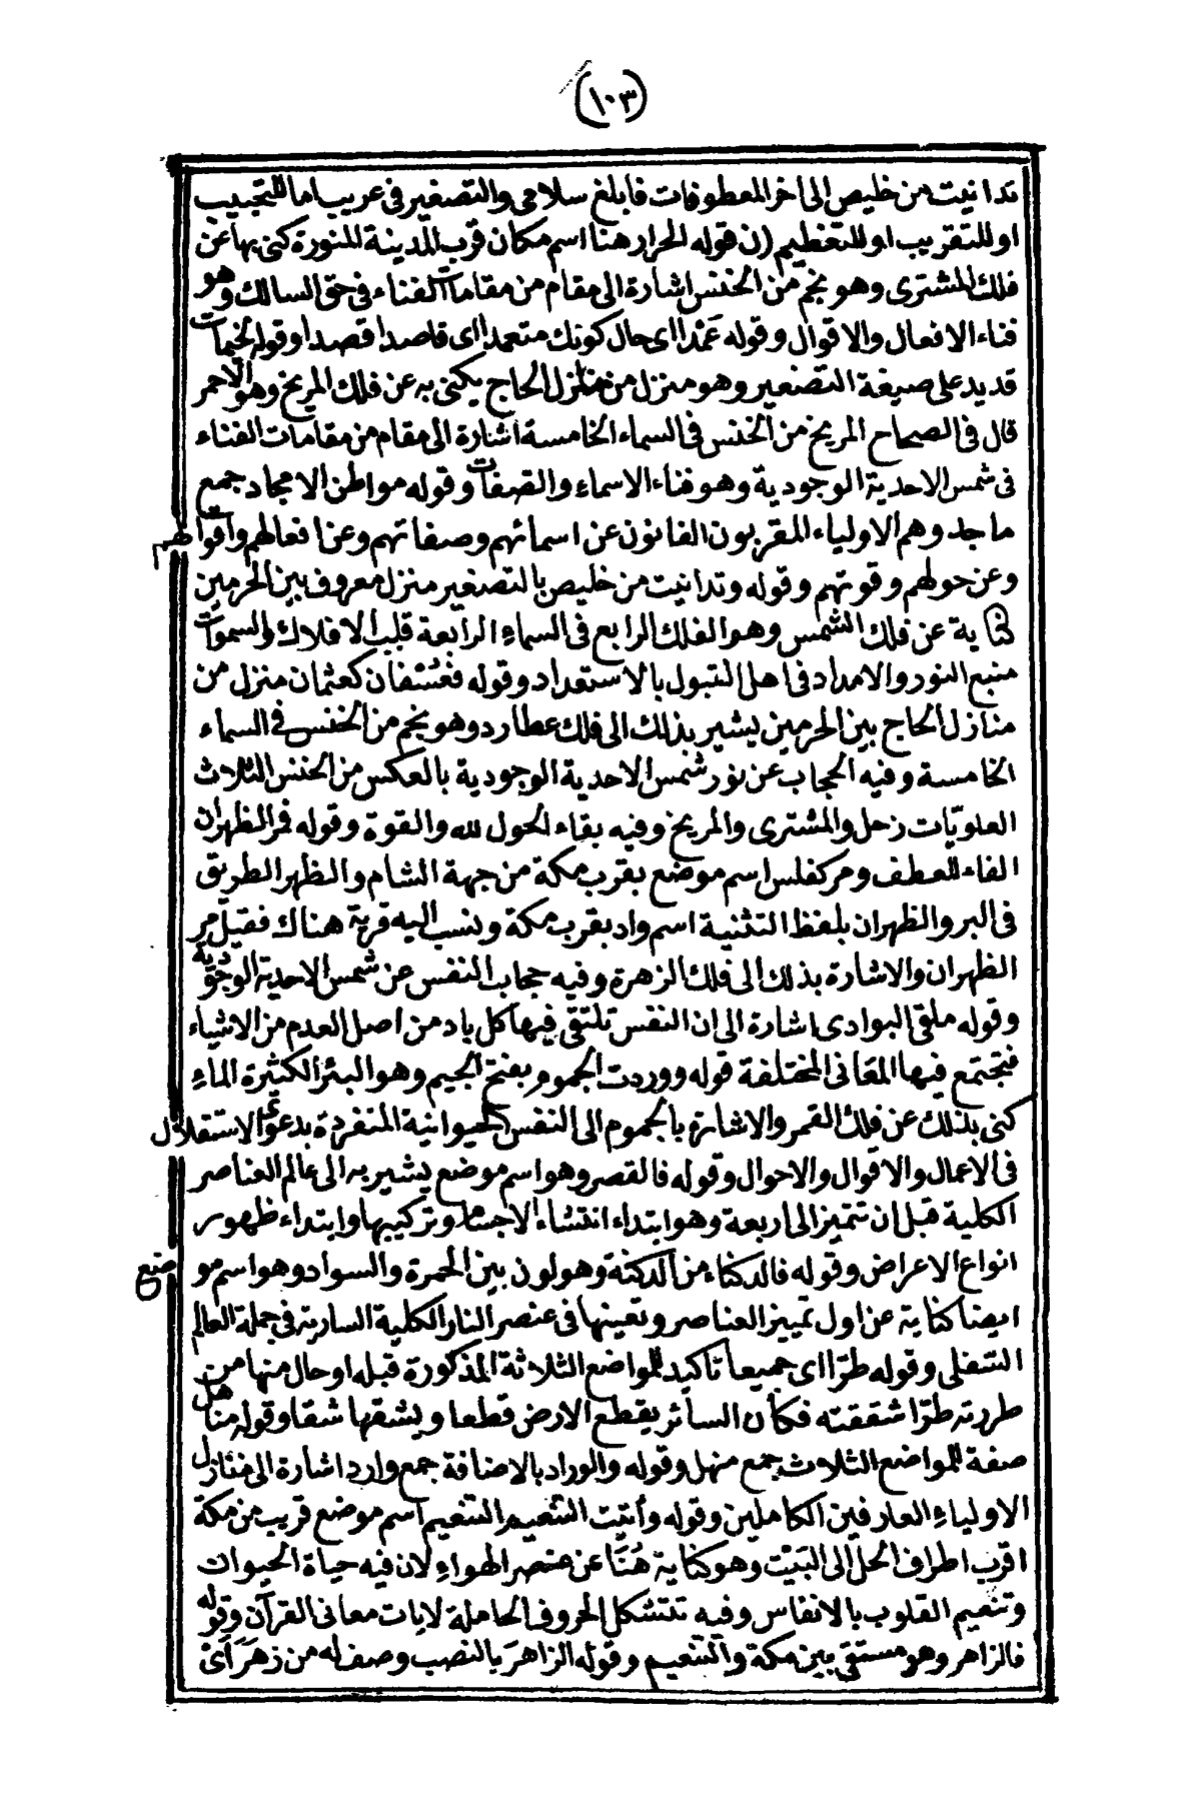 (١٠٣)
تدانيت من خليص الى أخر المعطوفات فابلغ سلامى والتصغير فى عريب اما للتحبيب
او للتقريب او للتعظيم (ن قوله الحرار هنا اسم مكان قرب المدينة المنورة كنى بها عن
فلك المشترى وهو نجم من الخنس اشارة الى مقام من مقامات الفناء فى حق السالك وهو
فناء الافعال والاقوال وقوله عَمْدًا اى حال كونك متعمدا اى قاصدا قصدا وقوله لخيمات
قديد على صيغة التصغير وهو منزل من منازل الحاج يكنى به عن فلك المريخ وهو الاحمر
قال فى الصحاح المريخ من الخنس فى السماء الخامسة اشارة الى مقام من مقامات الفناء
فى شمس الاحدية الوجودية وهو فناء الاسماء والصفات وقوله مواطن الامجاد جمع
ماجد وهم الاولياء المقربون الفانون عن اسمائهم وصفاتهم وعن افعالهم واقوالهم
وعن حولهم وقوتهم وقوله وتدانيت من خليص بالتصغير منزل معروف بين الحرمين
كناية عن فلك الشمس وهو الفلك الرابع فى السماء الرابعة قلب الافلاك والسموات
منبع النور والامداد فى اهل القبول بالاستعداد وقوله فعُسْفان كعثمان منزل من
منازل الحاج بين الحرمين يشير بذلك الى فلك عطارد وهو نجم من الخنس فى السماء
الخامسة وفيه الحجاب عن نور شمس الاحدية الوجودية بالعكس من الخنس الثلاث
العلويّات زحل والمشترى والمريخ وفيه بقاء الحول لله والقوة وقوله فمر الظهران
الفاء للعطف ومر كفلس اسم موضع بقرب مكة من جهة الشام والظهر الطريق
فى البر والظهران بلفظ التثنية اسم واد بقرب مكة ونسب اليه قرية هناك فقيل مر
الظهران والاشارة بذلك الى فلك الزهرة وفيه حجاب النفس عن شمس الاحدية الوجودية
وقوله ملقى البوادى اشارة الى ان النفس تلتقى فيها كل باد من اصل العدم من الاشياء
فتجتمع فيها المعانى المختلفة قوله ووردت الجموم بفتح الجيم وهو البئر الكثيرة الماء
كنى بذلك عن فلك القمر والاشارة بالجموم الى النفس الحيوانية المتفردة بدعوى الاستقلال
فى الاعمال والاقوال والاحوال وقوله فالقصر وهو اسم موضع يشير به الى عالم العناصر
الكلية قبل ان تتميز الى اربعة وهو ابتداء انتشاء الاجسام وتركيبها وابتداء ظهور
انواع الاعراض وقوله فالدكناء من الدكنة وهو لون بين الحمرة والسواد وهو اسم موضع
ايضا كناية عن اول تمييز العناصر وتعينها فى عنصر النار الكلية السارية فى جملة العالم
السفلى وقوله طرّا اى جميعا تاكيد للمواضع الثلاثة المذكورة قبله او حال منها من
طررته طرّا شققته فكأن السائر يقطع الارض قطعا ويشقها شقا وقوله مناهل
صفة للمواضع الثلاث جمع منهل وقوله والوراد بالاضافة جمع وارد اشارة الى منازل
الاولياء العارفين الكاملين وقوله وأتيت التنعيم التنعيم اسم موضع قريب من مكة
اقرب اطراف الحل الى البَيْت وهو كناية هُنَا عن عنصر الهواء لان فيه حياة الحيوان
وتنعيم القلوب بالانفاس وفيه تتشكل الحروف الحاملة لايات معانى القرآن وقوله
فالزاهر وهو مستقى بين مكة والتنعيم وقوله الزاهرَ بالنصب وصف له من زهَرَ أىْ